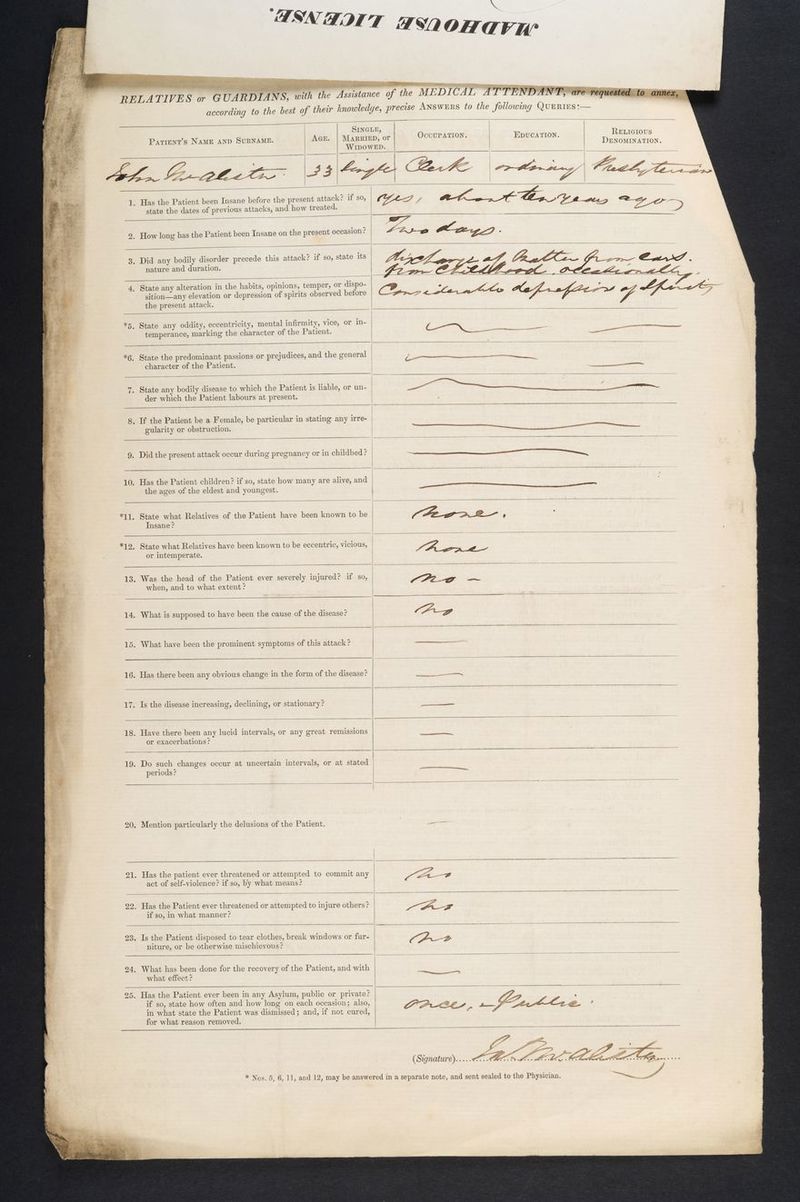 MADHOUSE LICENSE.
RELATIVES or GUARDIANS, with the Assistance of the MEDICAL ATTENDANT, are requested to annex,
according to the best of their knowledge, precise ANSWERS to the following QUERIES:—
PATIENT'S NAME AND SURNAME.
AGE.
SINGLE,
MARRIED, OR
WIDOWED.
OCCUPATION.
EDUCATION.
RELIGIOUS
DENOMINATION.
John
33
Single
Clerk
ordinary
Presbyterian
1. Has the Patient been Insane before the present attack? if so,
state the dates of previous attacks, and how treated.
Yes, about ten years ago
2. How long has the Patient been Insane on the present occasion?
Two days.
3. Did any bodily disorder precede this attack? if so, state its
nature and duration.
discharge of Matter from ears.
from Childhood. occasionally.
4. State any alteration in the habits, opinions, temper, or dispo-
sition—any elevation or depression of spirits observed before
the present attack.
Considerable depression of Spirits
*5. State any oddity, eccentricity, mental infirmity, vice, or in-
temperance, marking the character of the Patient.
*6. State the predominant passions or prejudices, and the general
character of the Patient.
7. State any bodily disease to which the Patient is liable, or un-
der which the Patient labours at present.
8. If the Patient be a Female, be particular in stating any irre-
gularity or obstruction.
9. Did the present attack occur during pregnancy or in childbed?
10. Has the Patient children? if so, state how many are alive, and
the ages of the eldest and youngest.
*11. State what Relatives of the Patient have been known to be
Insane?
None.
*12. State what Relatives have been known to be eccentric, vicious,
or intemperate.
None
13. Was the head of the Patient ever severely injured? if so,
when, and to what extent?
No –
14. What is supposed to have been the cause of the disease?
No
15. What have been the prominent symptoms of this attack?
16. Has there been any obvious change in the form of the disease?
17. Is the disease increasing, declining, or stationary?
18. Have there been any lucid intervals, or any great remissions
or exacerbations?
19. Do such changes occur at uncertain intervals, or at stated
periods?
20. Mention particularly the delusions of the Patient.
21. Has the patient ever threatened or attempted to commit any
act of self-violence? if so, by what means?
No
22. Has the Patient ever threatened or attempted to injure others?
if so, in what manner?
No
23. Is the Patient disposed to tear clothes, break windows or fur-
niture, or be otherwise mischievous?
No
24. What has been done for the recovery of the Patient, and with
what effect?
25. Has the Patient ever been in any Asylum, public or private?
if so, state how often and how long on each occasion; also,
in what state the Patient was dismissed; and, if not cured,
for what reason removed.
once, – Public.
(Signature)
* Nos. 5, 6, 11, and 12, may be answered in a separate note, and sent sealed to the Physician.